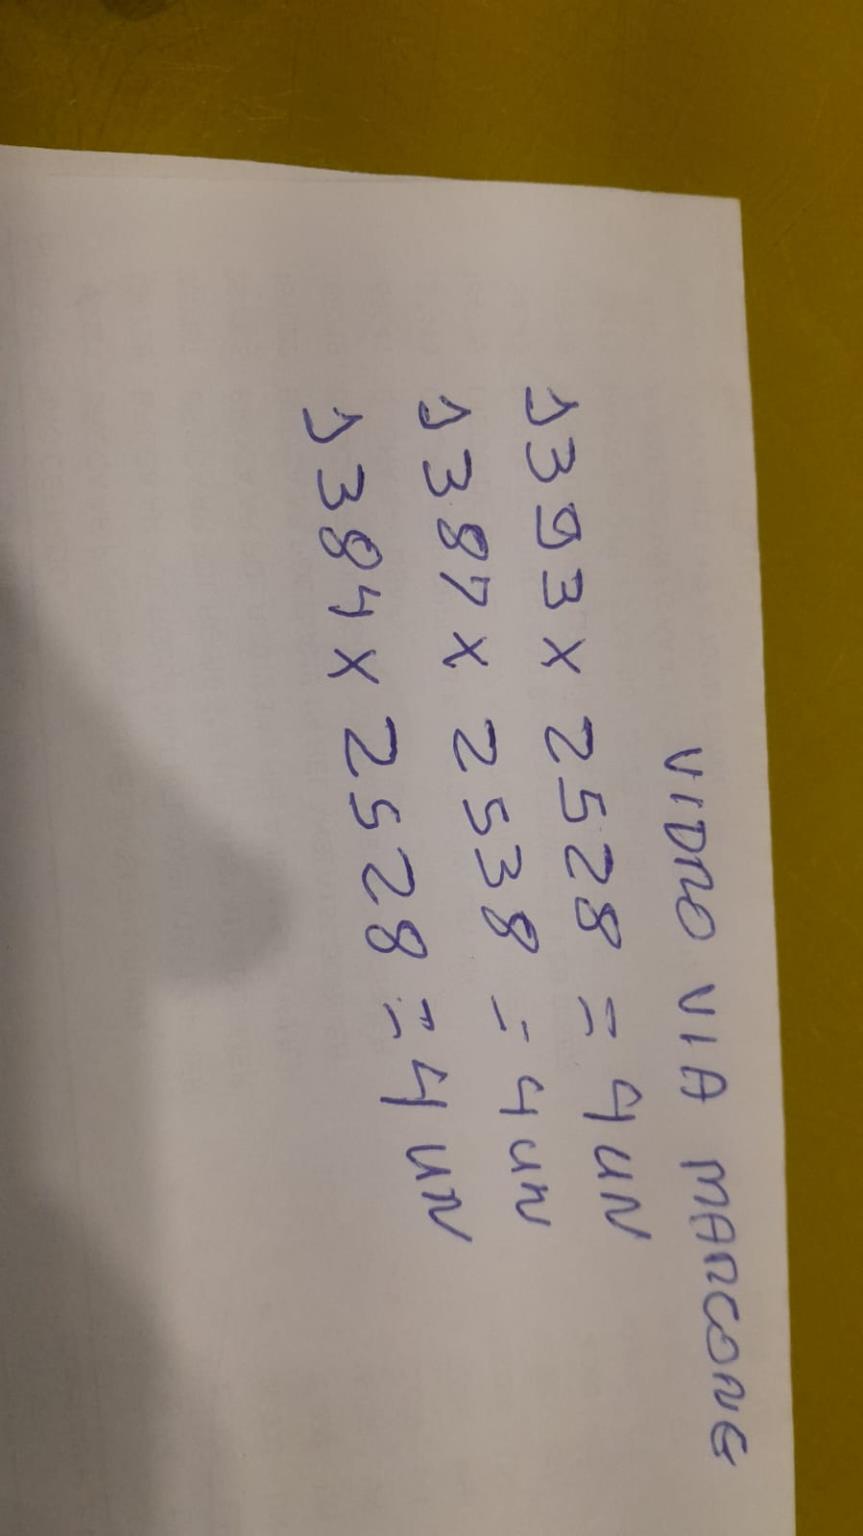 VIDRO VIA MARCONE
1393 x 2528 = 4 UN
1387 x 2538 = 4 UN
1384 x 2528 = 4 UN